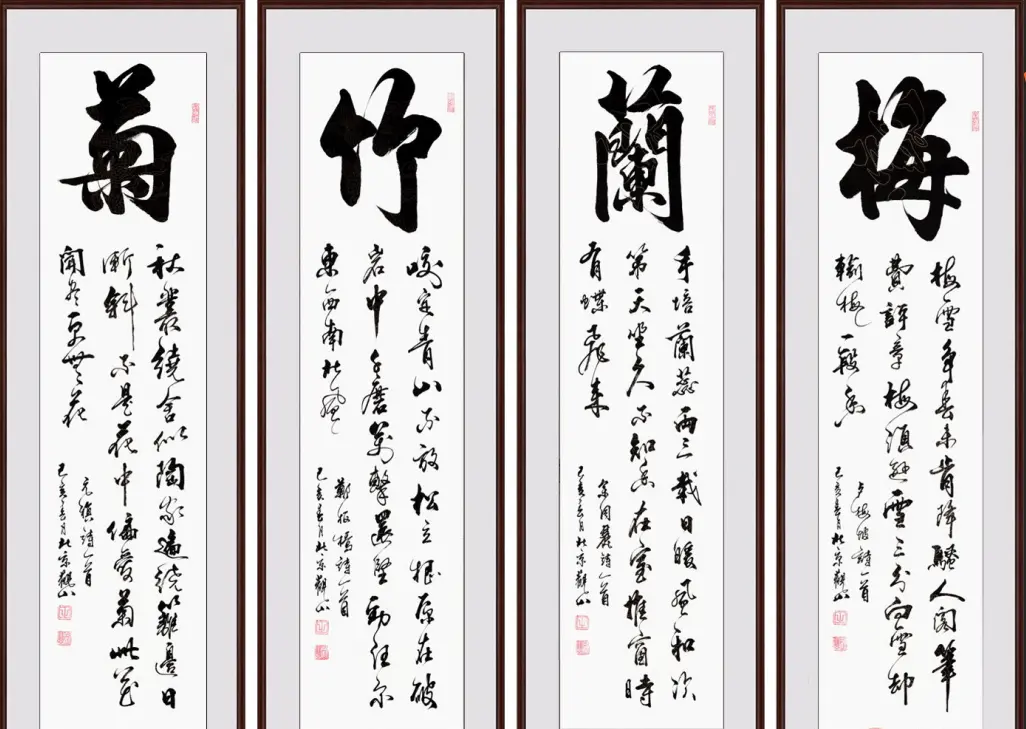 梅
梅雪争春未肯降騷人閣筆
費評章梅須遜雪三分白雪却
輸梅一段香
卢梅坡詩一首
己亥春月北京觀山
蘭
手培蘭蕊两三栽日暖風和次
第天坐久不知香在室推窗時
有蝶飛来
余同麓詩一首
己亥春月北京觀山
竹
咬定青山不放松立根原在破
岩中千磨萬擊還堅勁任尔
東西南北風
鄭板橋詩一首
己亥春月北京觀山
菊
秋叢繞舍似陶家遍繞籬邊日
漸斜不是花中偏愛菊此花
開尽更無花
元稹詩一首
己亥春月北京觀山